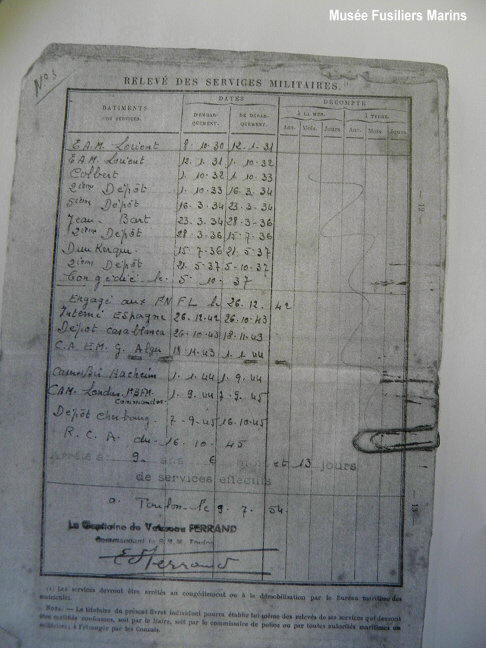 Musée Fusiliers Marins
No 3
RELEVÉ DES SERVICES MILITAIRES.
BATIMENTS
OU SERVICES.
DATES
D'EMBAR-
QUEMENT.
DE DÉBAR-
QUEMENT.
DÉCOMPTE
À LA MER.
À TERRE.
Ans. Mois. Jours. Ans. Mois. Jours.
E.A.M. Lorient 8.10.30 12.1.31
E.A.M. Lorient 12.1.31 1.10.32
Colbert 1.10.32 1.10.33
2ième Dépôt 1.10.33 16.3.34
5ième Dépôt 16.3.34 23.3.34
Jean Bart 23.3.34 28.3.36
2ième Dépôt 28.3.36 15.7.36
Dunkerque 15.7.36 21.5.37
2ième Dépôt 21.5.37 5.10.37
Congédié le 5.10.37
Engagé aux FNFL le 26.12.42
Interné Espagne 26.12.42 26.10.43
Dépôt Casablanca 26.10.43 18.11.43
C.A.EM.G. Alger 18.11.43 1.1.44
Hacheim 1.1.44 1.9.44
CAM. Londres 1er BFM.
Commandos 1.9.44 7.9.45
Dépôt Cherbourg 7.9.45 16.10.45
R.C.A du 16.10.45
Arrêté à 9 ans 6 et 13 jours
de services effectifs
a. Toulon le 9.7.54.
Le Capitaine de Vaisseau FERRAND
Commandant le Toulon
Ferrand
(1) Les services devront être arrêtés au congédiement ou à la démobilisation par le Bureau maritime des
matricules.
NOTA. — Le titulaire du présent livret individuel pourra établir lui-même des relevés de ses services qui devront
être certifiés conformes, soit par le Maire, soit par le commissaire de police ou par toutes autorités maritimes ou
militaires; à l'étranger par les Consuls.
— 12 —